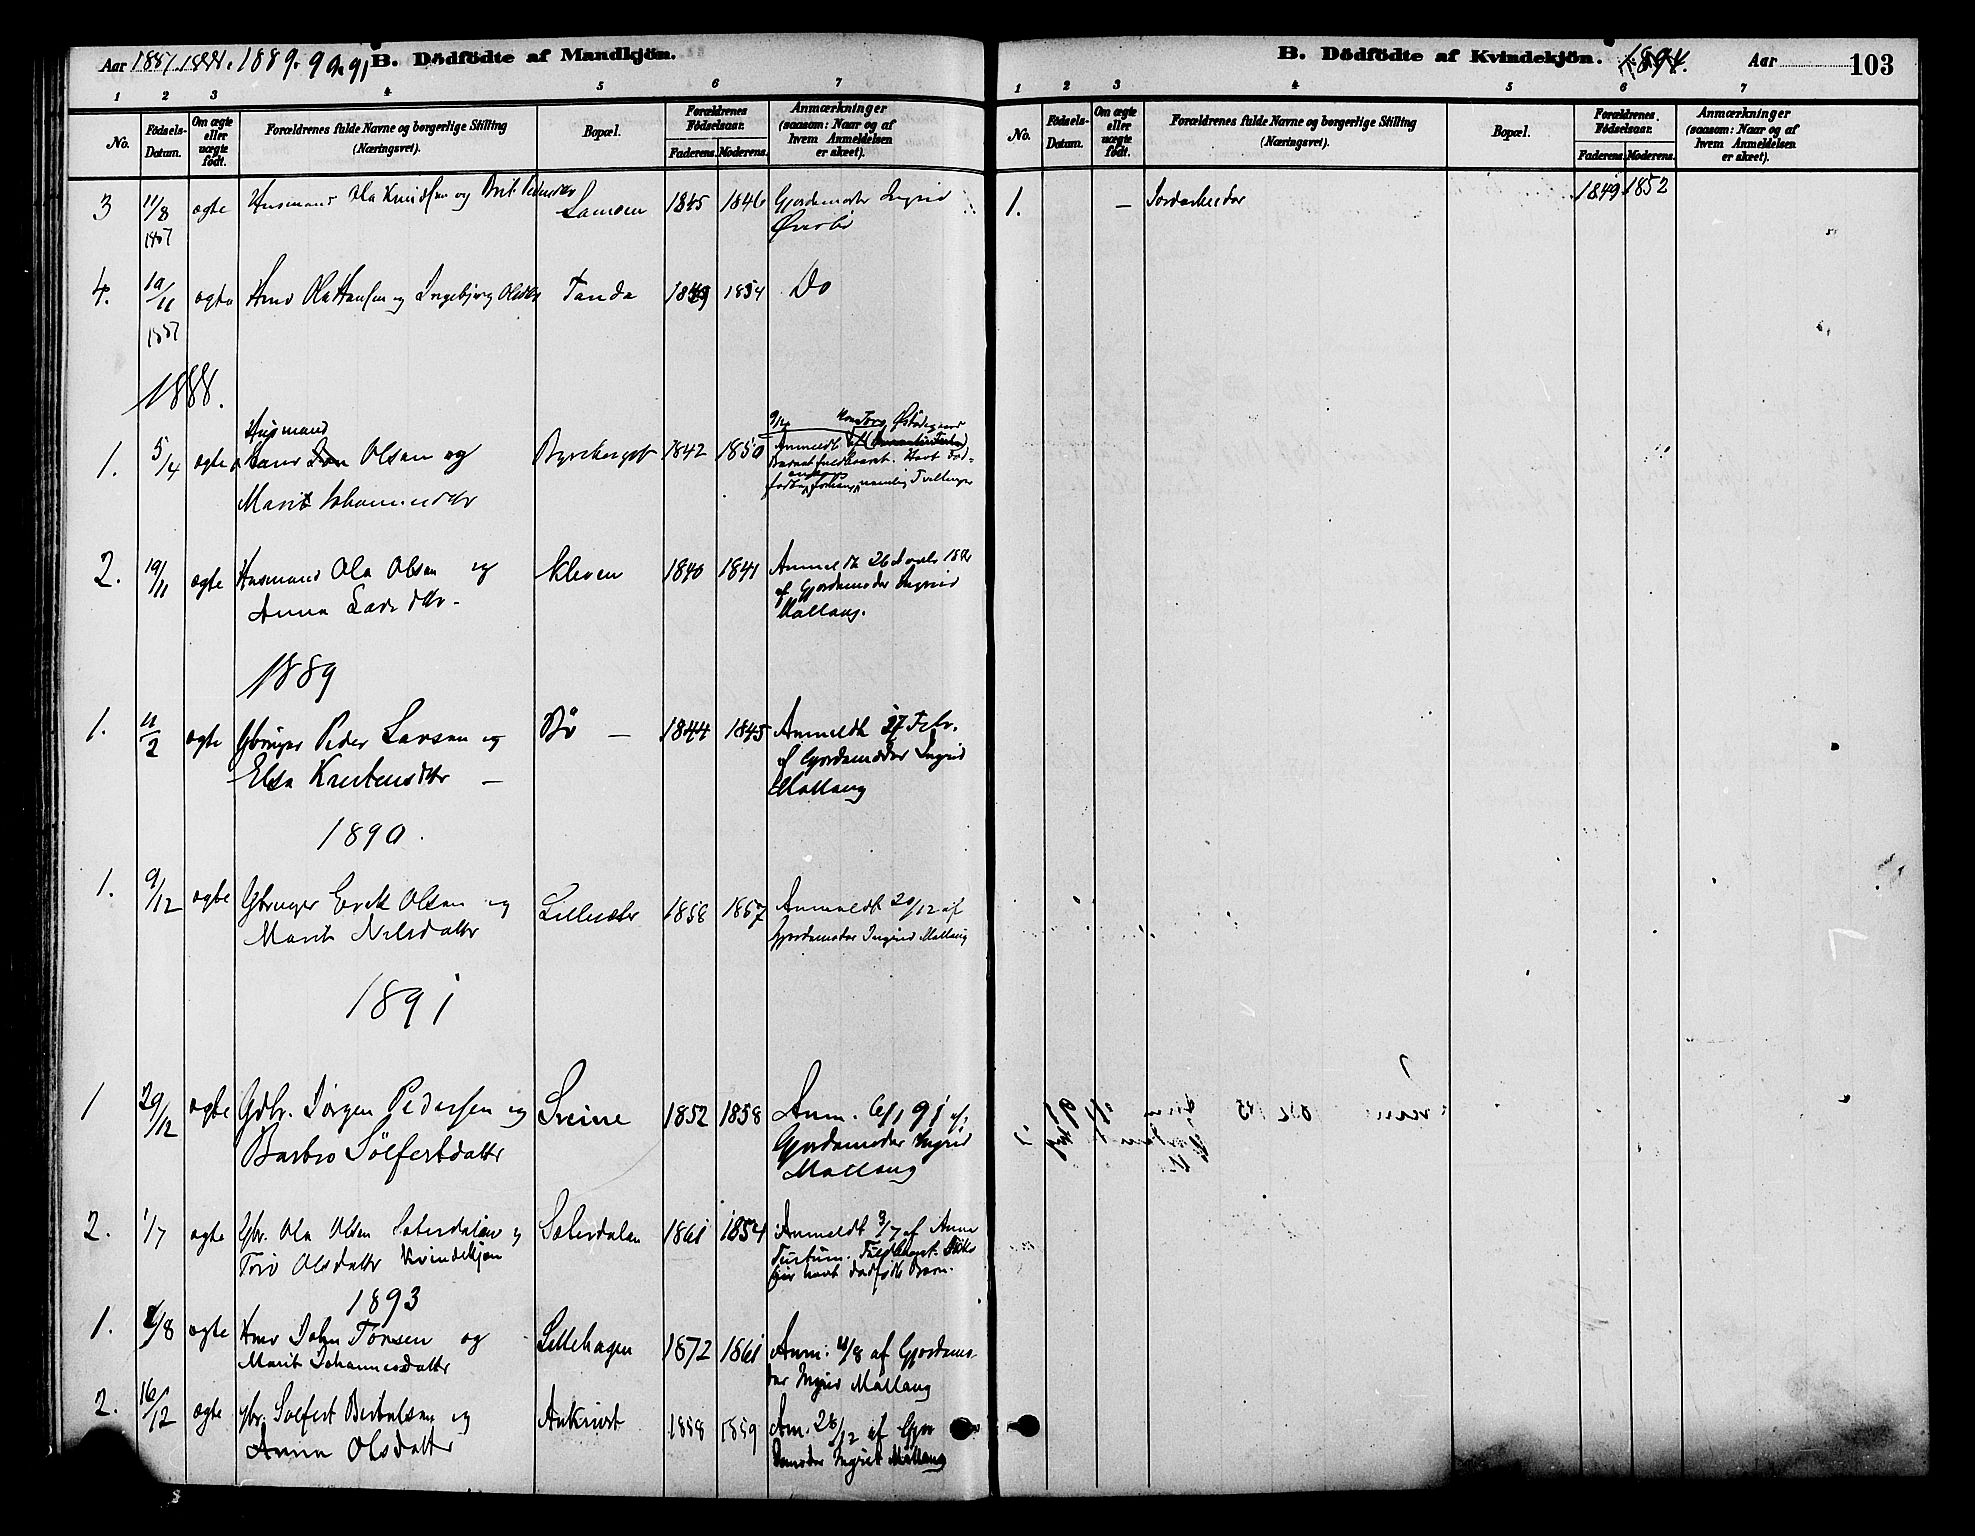 Aar 1887. 1888. 1889. 90. 91 B. Dödfödte af Mandkjön.
1 2 3 4 5 6 7
No.
Födsels-Datum.
Om ægte eller uægte födt.
Forældrenes fulde Navne og borgerlige Stilling (Næringsvei).
Bopæl.
Forældrenes Födselsaar.
Faderens. Moderens.
Anmærkninger (saasom: Naar og af hvem Anmeldelsen er skeet).
3 11/8 ægte Husmand Ola Knudsen og Brit Pedersdtr 1845 1846 Gjordemoder Ingrid
1887
4. 10/11 ægte Hmd Ola Hansen og Ingebjørg Olsdtr Tande 1849 1854 Do
1887
1888.
Husmand
1. 5/4 ægte Hans Olsen og 1842 1850 Anmeldt
Marit Johannesdtr
2. 19/11 ægte Husmand Ola Olsen og Kleven 1840 1841 Anmeldt 26
Anna Larsdtr. af Gjordemoder Ingrid
Mallang.
1889
1. 11/2 ægte Gbruger Peder Larsen og Bø 1844 1845 Anmeldt 27 Febr.
Elsa Krestensdtr af Gjordemoder Ingrid
Mallang
1890.
1. 9/12 ægte Gbruger Erik Olsen og Lillesæter 1858 1857 Anmeldt 20/12 af
Marit Nilsdatter Gjordemoder Ingrid Mallang
1891
1 29/12 ægte Gdbr. Jørgen Pedersen og Sreine 1852 1858 Anm. 6/1 91 af
Barbro Sölfestdatter Gjordemoder Ingrid
Mallang
2. 1/7 ægte Gbr. Ola Olsen Sæterdalen og Sæterdalen 1861 1854 Anmeldt 3/7 af Anne
Torø Olsdatter Kvindekjøn
havt dødfødte Børn.
1893
1. /8 ægte Hmd John Torsen og Lillehagen 1872 1861 Anm: /8 af Gjordemo-
Marit Johannesdatter der Ingrid Mallang
2. 16/12 ægte gbr. Solfest og 1858 1859 Anm. 28/12 af Gjor
Anna Olsdatter demoder Ingrid Mallang
B. Dödfödte af Kvindekjön. 1894. Aar 103
1 2 3 4 5 6 7
No.
Födsels-Datum.
Om ægte eller uægte födt.
Forældrenes fulde Navne og borgerlige Stilling (Næringsvei).
Bopæl.
Forældrenes Födselsaar.
Faderens. Moderens.
Anmærkninger (saasom: Naar og af hvem Anmeldelsen er skeet).
1. – Jordarbeider 1849 1852